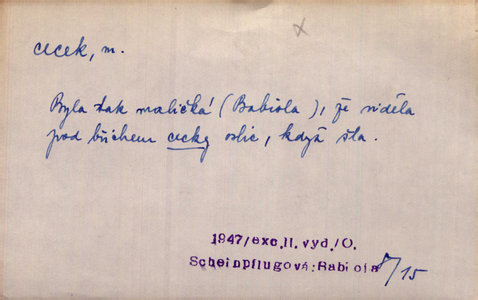 cecek, m.
Byla tak maličká (Babiola), že viděla
pod břichem cecky oslic, když šla.
1947/exc.II. vyd./O.
Scheinpflugová:Babiola
8/15